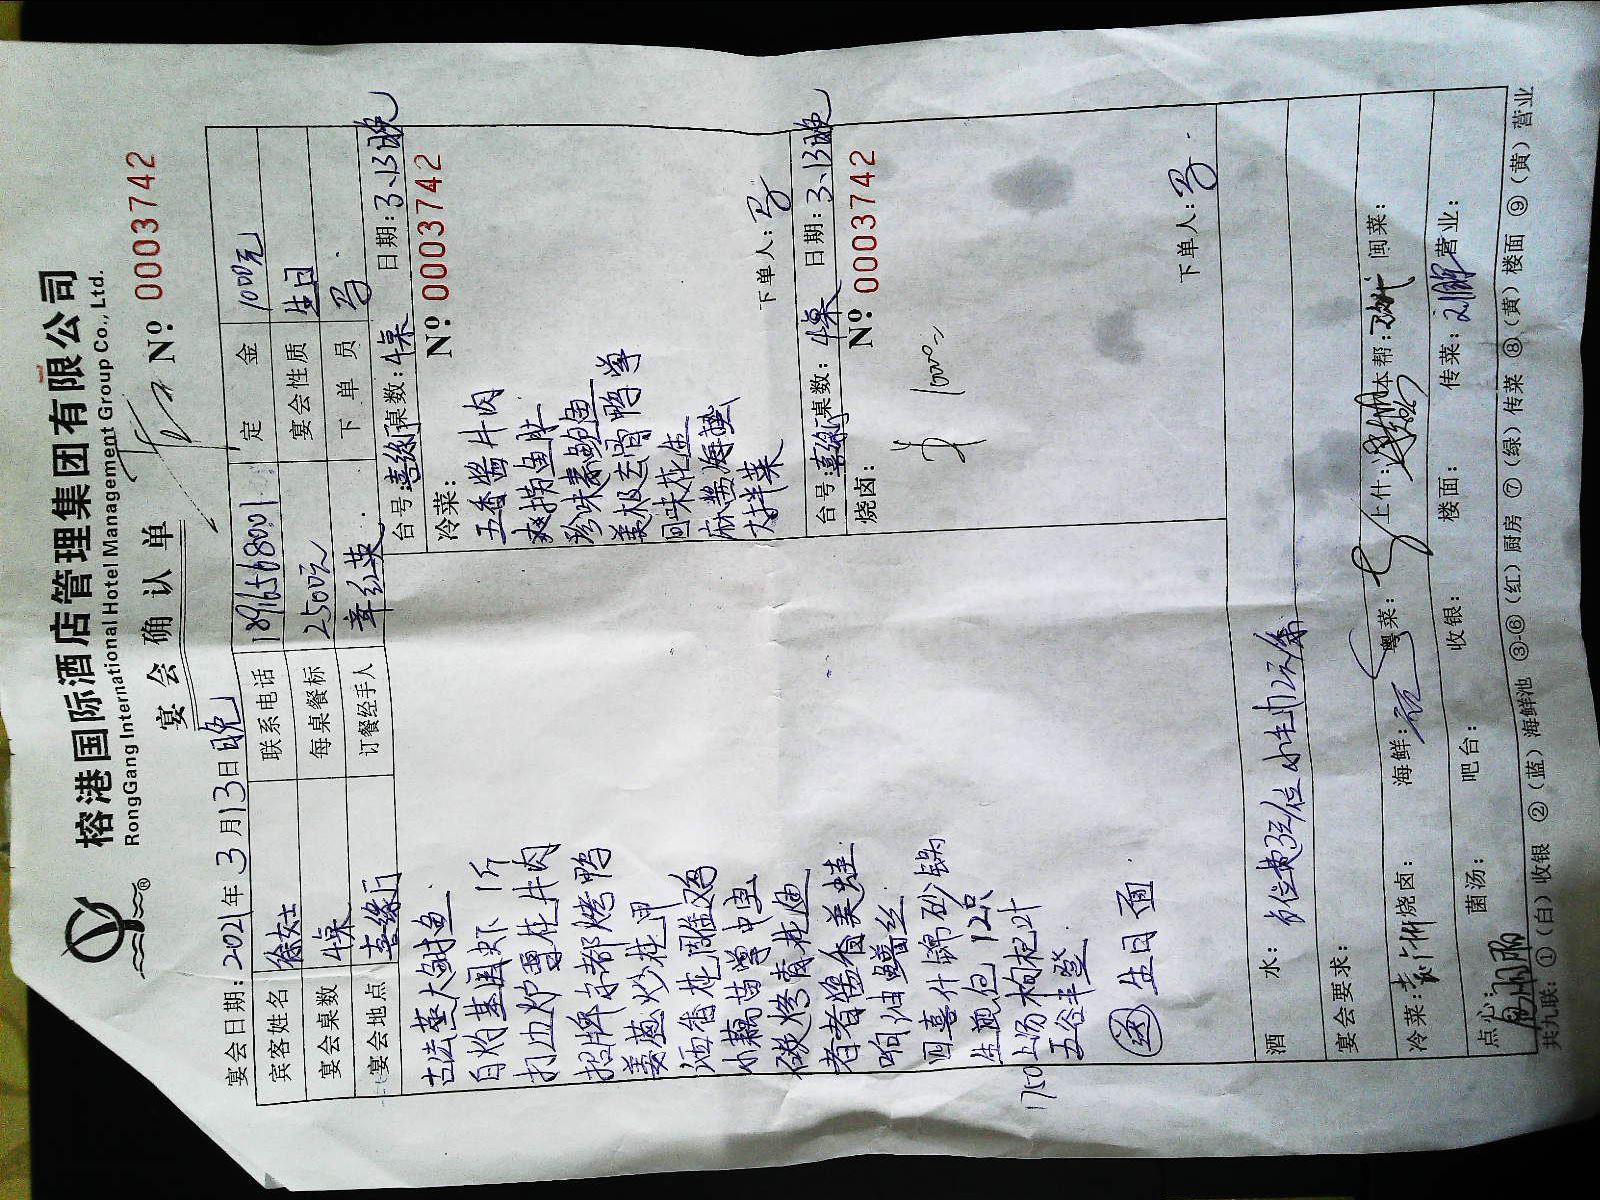 榕港国际酒店管理集团有限公司
RongGang International Hotel Management Group Co., Ltd.
®
宴会确认单 Nº: 0003742
宴会日期: 2021年3月13日晚
宾客姓名 徐女士 联系电话 18916568001 定金 1000元
宴会桌数 4桌 每桌餐标 2500元 宴会性质 生日
宴会地点 喜缘厅 订餐经手人 章红英 下单员 马
台号: 喜缘厅 桌数: 4桌 日期: 3.13晚
Nº: 0003742
冷菜:
五香酱牛肉
爽捞鱼肚
珍味素鲍鱼
美极去骨鸭掌
回味花生
麻酱海蜇
大拌菜
下单人: 马
台号: 喜缘厅 桌数: 4桌 日期: 3.13晚
烧卤: Nº: 0003742
下单人: 马
古法蒸大鲥鱼
白灼基围虾 1斤
打血炉雪花牛肉
招牌京都烤鸭
姜葱炒花甲
酒香花雕溢鸡
碳烤青花鱼
响油鳝丝
四喜什锦砂锅
生煎包 12只
上汤枸杞叶
五谷丰登
送 生日面
1750
酒水: 小毛巾2元/条
宴会要求:
冷菜: 烧卤: 海鲜: 粤菜: 上什: 本帮: 闽菜:
点心: 菌汤: 吧台: 收银: 楼面: 传菜: 营业:
共九联: ①(白)收银 ②(蓝)海鲜池 ③-⑥(红)厨房 ⑦(绿)传菜 ⑧(黄)楼面 ⑨(黄)营业